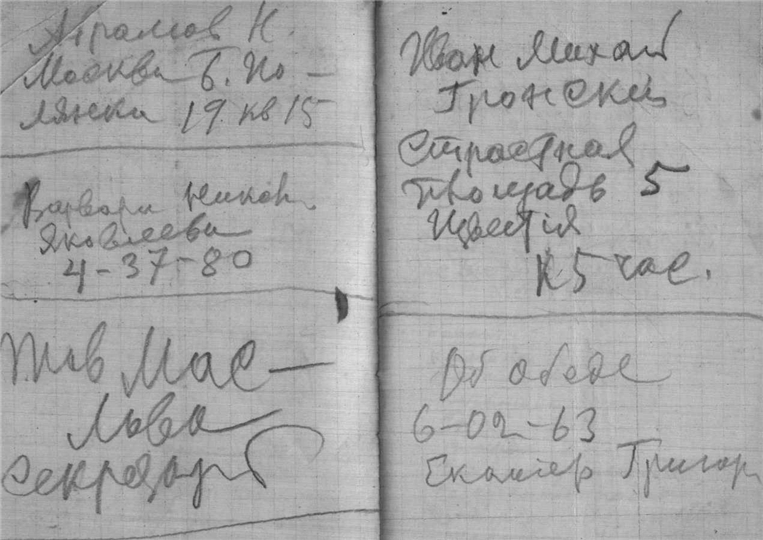 Абрамов К.
Москва Б. По-
лянка 19 кв 15
Варвара Никон
Яковлева
4-37-80
Тов Мас-
лова
секретарь
Иван Михай
Гронский
Страстная
площадь 5
Известия
к 5 час.
Об обеде
6-02-63
Екатер Григор